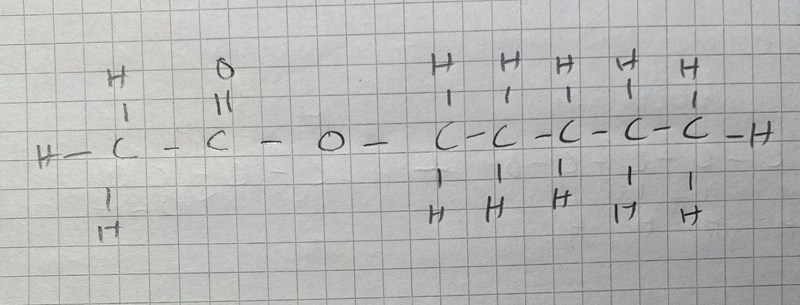 H O H H H H H
| || | | | | |
H – C – C – O – C – C – C – C – C – H
| | | | | |
H H H H H H